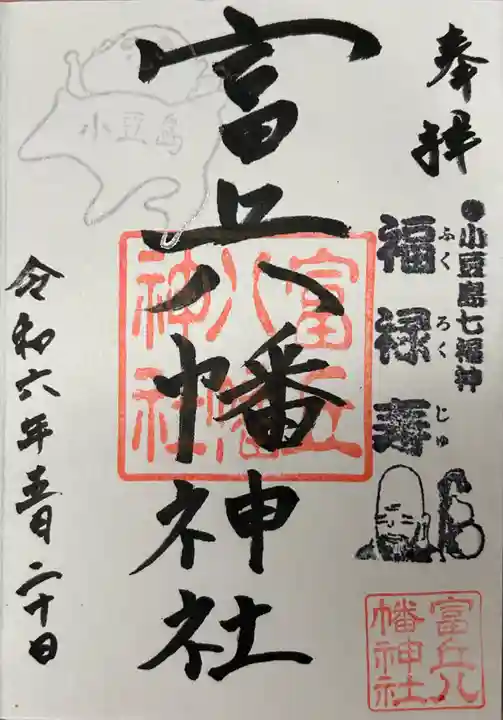 奉拝
●小豆島七福神
福禄寿
ふく ろく じゅ
小豆島
富丘八幡神社
富丘
八幡
神社
富丘八
幡神社
令和六年五月二十日